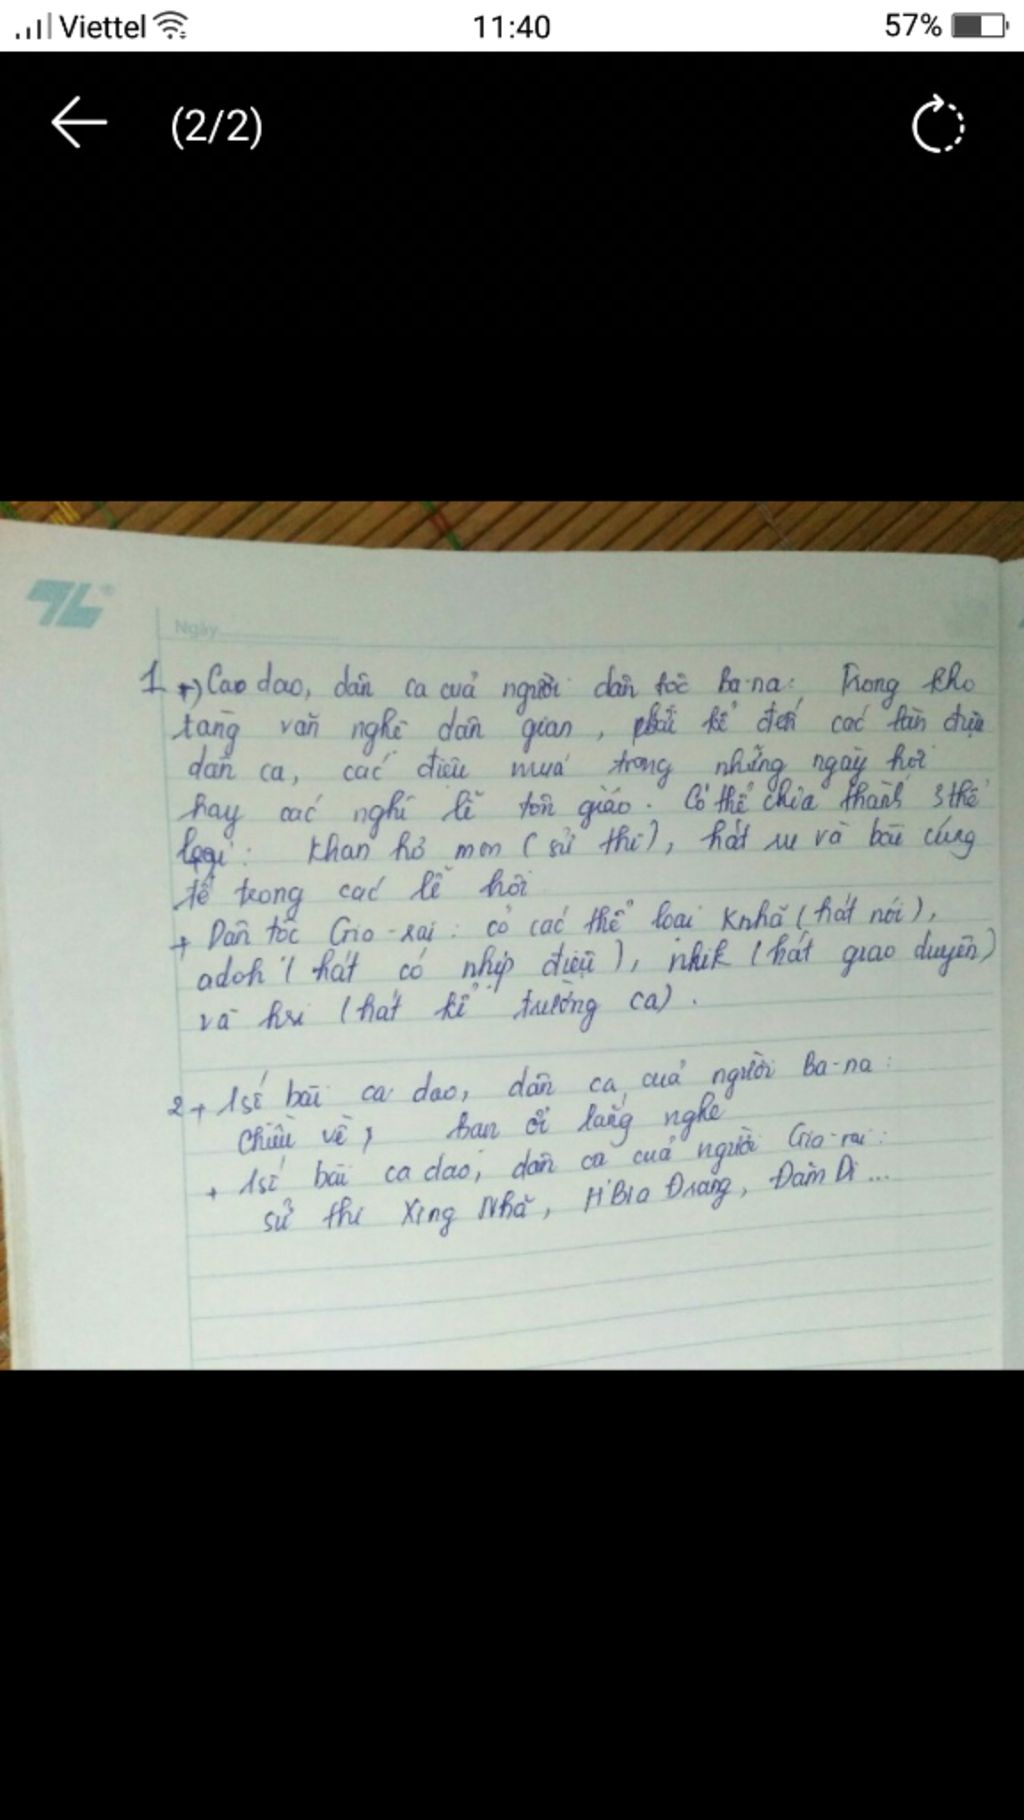 Viettel 11:40 57%
(2/2)
TL
Ngày
1 +) Cao dao, dân ca của người dân tôc Ba-na: Trong kho
tàng văn nghê dân gian, phải kể đến các làn điệu
dân ca, các điệu múa trong những ngày hôi
hay các nghi lễ tôn giáo. Có thể chia thành 3 thể
loại: Khan hơ mon (sử thi), hát ru và bài cúng
tế trong các lễ hôi
+ Dân tôc Gio-rai: có các thể loại Knhă (hát nói),
adoh (hát có nhịp điệu), nhik (hát giao duyên)
và hri (hát kể trường ca).
2 + 1 số bài ca dao, dân ca của người Ba-na:
Chiều về, ban ơi lắng nghe
+ 1 số bài ca dao, dân ca của người Gio-rai:
sử thi Xing Nhă, H'Bia Đrang, Đăm Di...